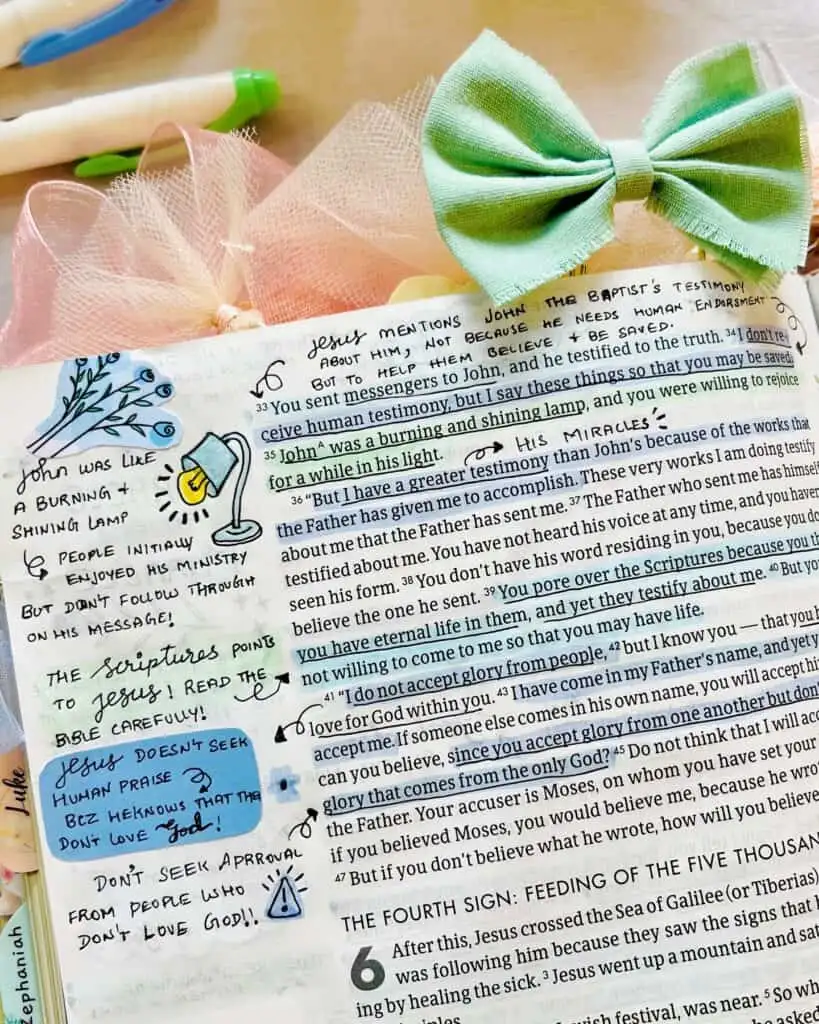 Jesus MENTIONS JOHN THE BAPTIST'S TESTIMONY
ABOUT HIM, NOT BECAUSE HE NEEDS HUMAN ENDORSMENT
BUT TO HELP THEM BELIEVE + BE SAVED.
33 You sent messengers to John, and he testified to the truth. 34 I don't re-
ceive human testimony, but I say these things so that you may be saved.
35 John^A was a burning and shining lamp, and you were willing to rejoice
for a while in his light.
HIS MIRACLES
36 "But I have a greater testimony than John's because of the works that
the Father has given me to accomplish. These very works I am doing testify
about me that the Father has sent me. 37 The Father who sent me has himself
testified about me. You have not heard his voice at any time, and you haven
seen his form. 38 You don't have his word residing in you, because you do
believe the one he sent. 39 You pore over the Scriptures because you th
you have eternal life in them, and yet they testify about me. 40 But you
not willing to come to me so that you may have life.
41 "I do not accept glory from people, 42 but I know you — that you h
love for God within you. 43 I have come in my Father's name, and yet y
accept me. If someone else comes in his own name, you will accept hi
can you believe, since you accept glory from one another but don'
glory that comes from the only God? 45 Do not think that I will acc
the Father. Your accuser is Moses, on whom you have set your
if you believed Moses, you would believe me, because he wro
47 But if you don't believe what he wrote, how will you believe
THE FOURTH SIGN: FEEDING OF THE FIVE THOUSAN
6 After this, Jesus crossed the Sea of Galilee (or Tiberias)
was following him because they saw the signs that h
ing by healing the sick. 3 Jesus went up a mountain and sat
ish festival, was near. 5 So wh
asked
John WAS LIKE
A BURNING +
SHINING LAMP
PEOPLE INITIALLY
ENJOYED HIS MINISTRY
BUT DON'T FOLLOW THROUGH
ON HIS MESSAGE!
THE Scriptures POINTS
TO Jesus! READ THE
BIBLE CAREFULLY!
Jesus DOESN'T SEEK
HUMAN PRAISE
BCZ HE KNOWS THAT THE
DON'T LOVE God!
DON'T SEEK APRROVAL
FROM PEOPLE WHO
DON'T LOVE GOD!!
Luke
Zephaniah